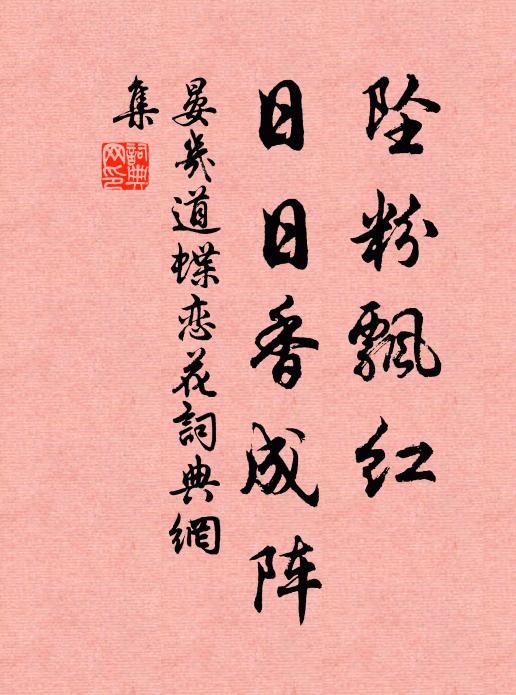 坠粉飘红
日日香成阵
晏幾道蝶恋花詞典網
集
詞典
网印